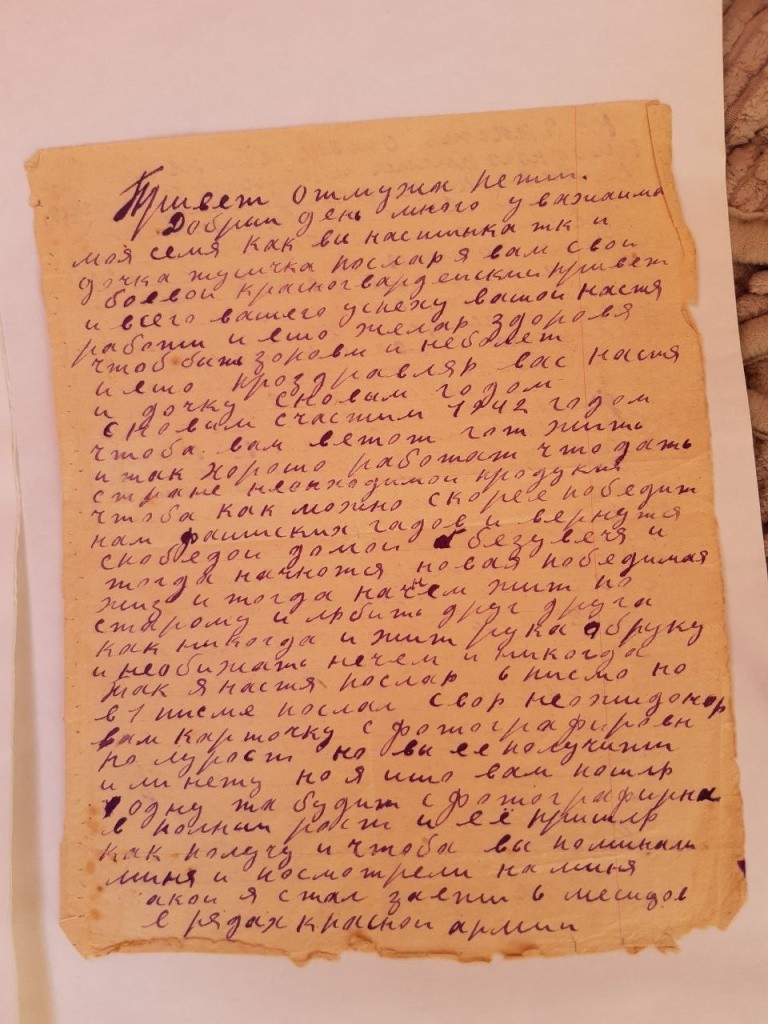 Привет отмужа пети.
Добрый день много уважаима
моя семя как ви настинька тк и
дочка посылар я вам свой
боевой красногвардейский привет
и всего вашего успеху вашой настя
работи и ешо желар здоровя
чтоб бить зорови и неболет
и ешо проздравляр вас настя
и дочку сновым годом
сновим счастим 1942 годом
чтоба вам ветот гот жить
итак хорошо работат чтодать
стране неонходимой продукия
чтоба как можно скорее победит
нам фашиских гадов и вернутя
спобедой домой безувечя и
тогда начнотся новая победимая
жиз и тогда начнем жит по
старому и любить друг друга
как никогда и жит рука обруку
и необижать нечем и никогда
так я настя послар 6 писмо но
в 1 писме послал свор неожиданор
вам карточку сфотографировн
полурост но ви ее получити
или нету но я ишо вам пошлр
одну та будит сфотографирна
в полнай рост и её пришлр
как получу и чтоба вы поминали
миня и посмотрели наминя
акой я стал заети 6 месицов
в рядах красной армии